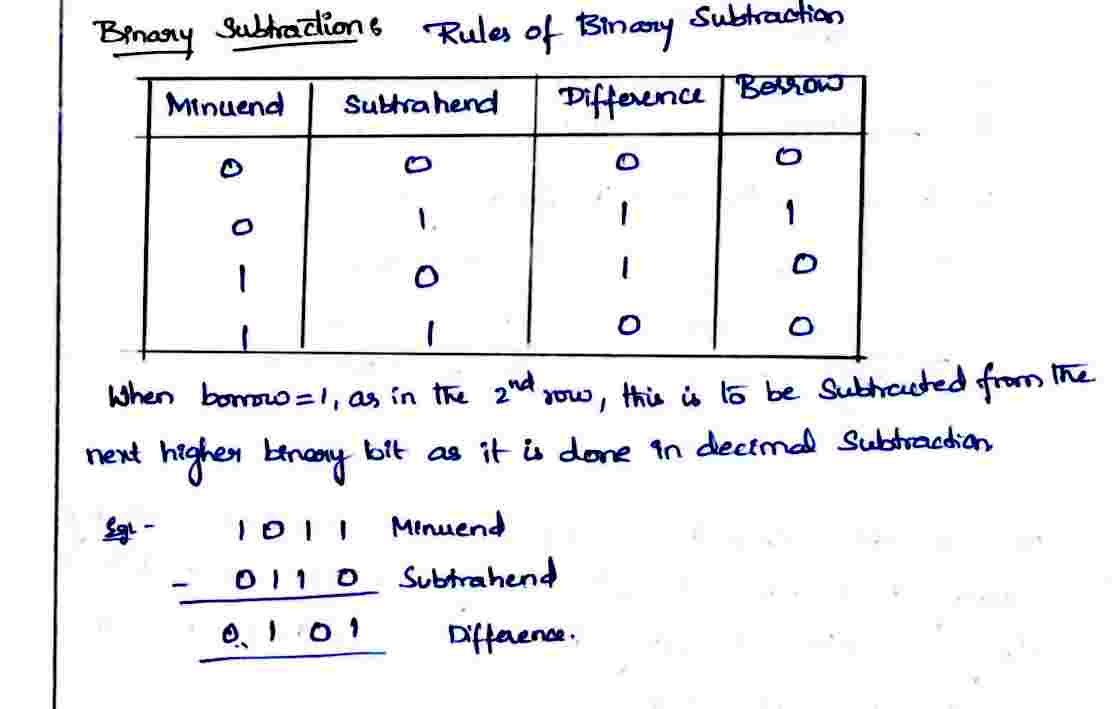 Binary Subtraction: Rules of Binary Subtraction
Minuend Subtrahend Difference Borrow
0 0 0 0
0 1 1 1
1 0 1 0
1 1 0 0
When borrow=1, as in the 2nd row, this is to be Subtracted from the
next higher binary bit as it is done in decimal Subtraction
Eg:- 1 0 1 1 Minuend
- 0 1 1 0 Subtrahend
0 1 0 1 Difference.